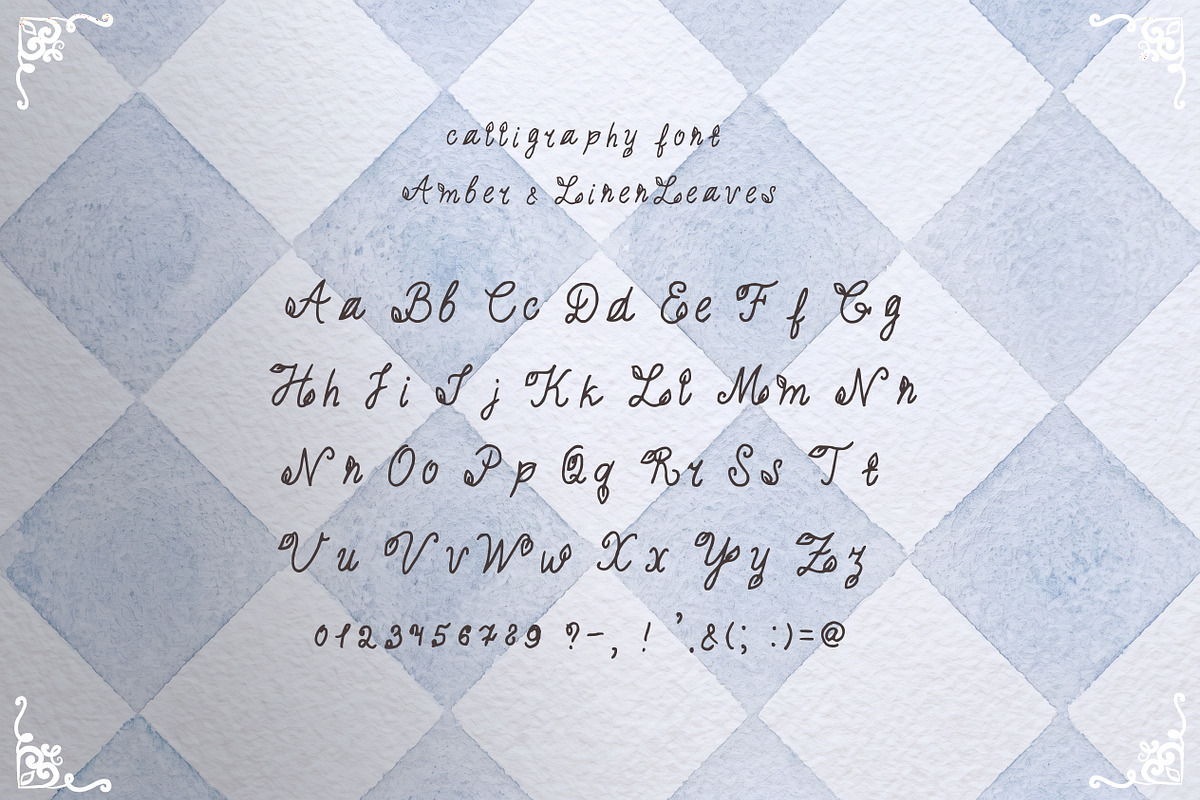 calligraphy font
Amber & LinenLeaves
Aa Bb Cc Dd Ee Ff Gg
Hh Ii Jj Kk Ll Mm Nn
Nn Oo Pp Qq Rr Ss Tt
Uu Vv Ww Xx Yy Zz
0123456789 ?-, ! '.&(; :)=@